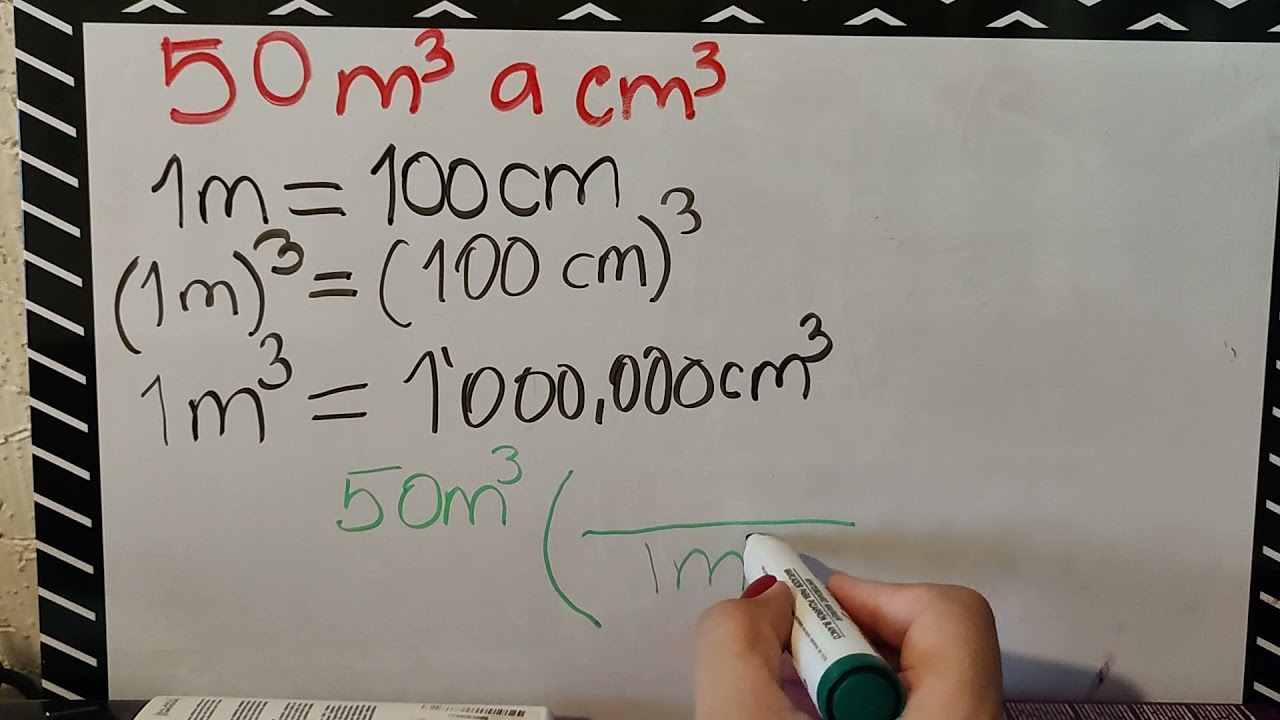 50 m³ a cm³
1m = 100cm
(1m)³ = (100 cm)³
1m³ = 1'000,000cm³
50m³ (
1m